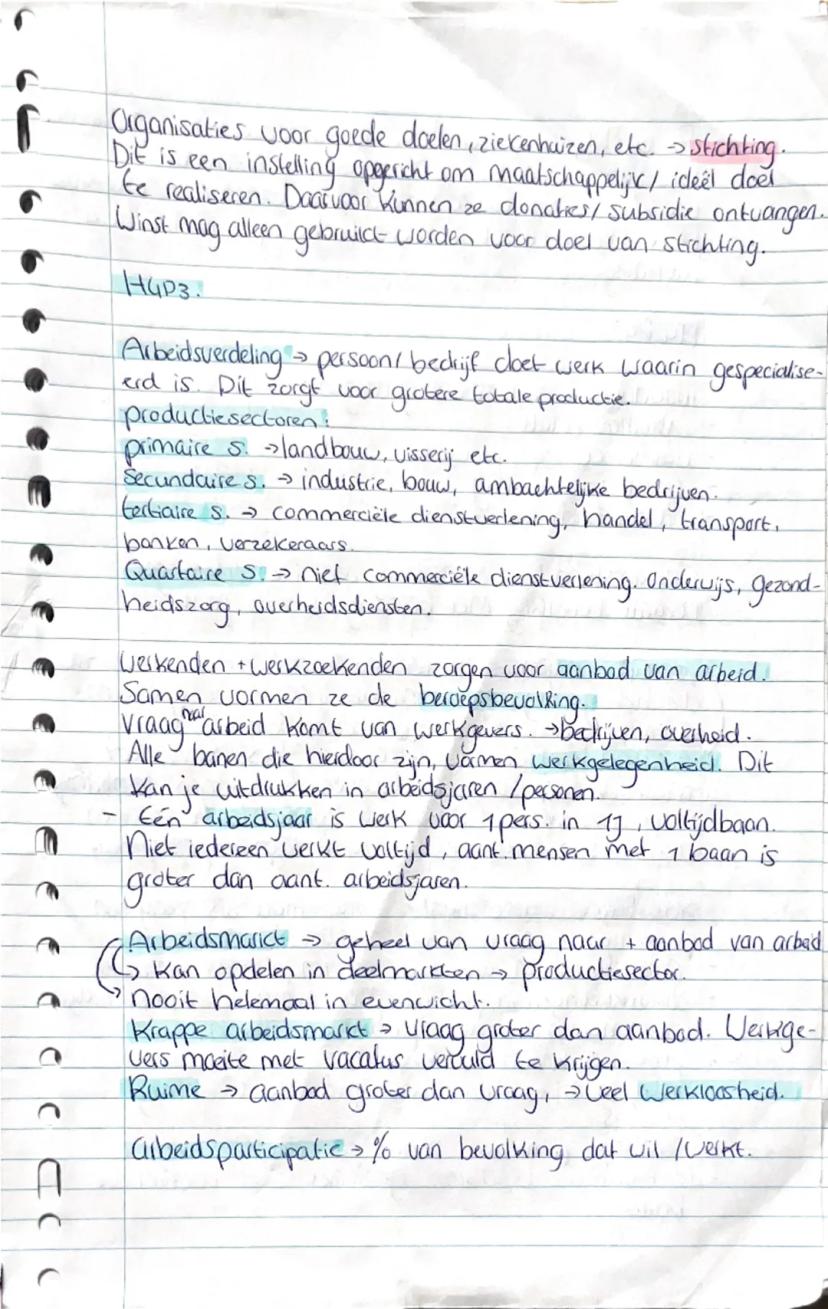 Organisaties voor goede doelen, ziekenhuizen, etc. → stichting.
Dit is een instelling opgericht om maatschappelijk/ ideël doel
te realiseren. Daarvoor kunnen ze donaties/ subsidie ontvangen.
Winst mag alleen gebruikt worden voor doel van stichting.
H4P3.
Arbeidsverdeling → persoon/ bedrijf doet werk waarin gespecialise-
erd is. Dit zorgt voor grotere totale productie.
productiesectoren:
primaire s. → landbouw, visserij etc.
Secundaire s. → industrie, bouw, ambachtelijke bedrijven.
tertiaire s. → commerciële dienstverlening, handel, transport,
banken, verzekeraars.
Quartaire s. → niet commerciële dienstverlening. Onderwijs, gezond-
heidszorg, overheidsdiensten.
Werkenden + werkzoekenden zorgen voor aanbod van arbeid.
Samen vormen ze de beroepsbevolking.
Vraag naar arbeid komt van werkgevers. → bedrijven, overheid.
Alle banen die hierdoor zijn, vormen werkgelegenheid. Dit
kan je uitdrukken in arbeidsjaren /personen.
- Eén arbeidsjaar is werk voor 1 pers. in 1j, voltijdbaan.
Niet iedereen werkt voltijd, aant. mensen met 1 baan is
groter dan aant. arbeidsjaren.
Arbeidsmarkt → geheel van vraag naar + aanbod van arbeid
↳ kan opdelen in deelmarkten → productiesector.
→ nooit helemaal in evenwicht.
Krappe arbeidsmarkt → vraag groter dan aanbod. Werkge-
vers moeite met vacatus vervuld te krijgen.
Ruime → aanbod groter dan vraag, → veel werkloosheid.
arbeidsparticipatie → % van bevolking dat wil /werkt.